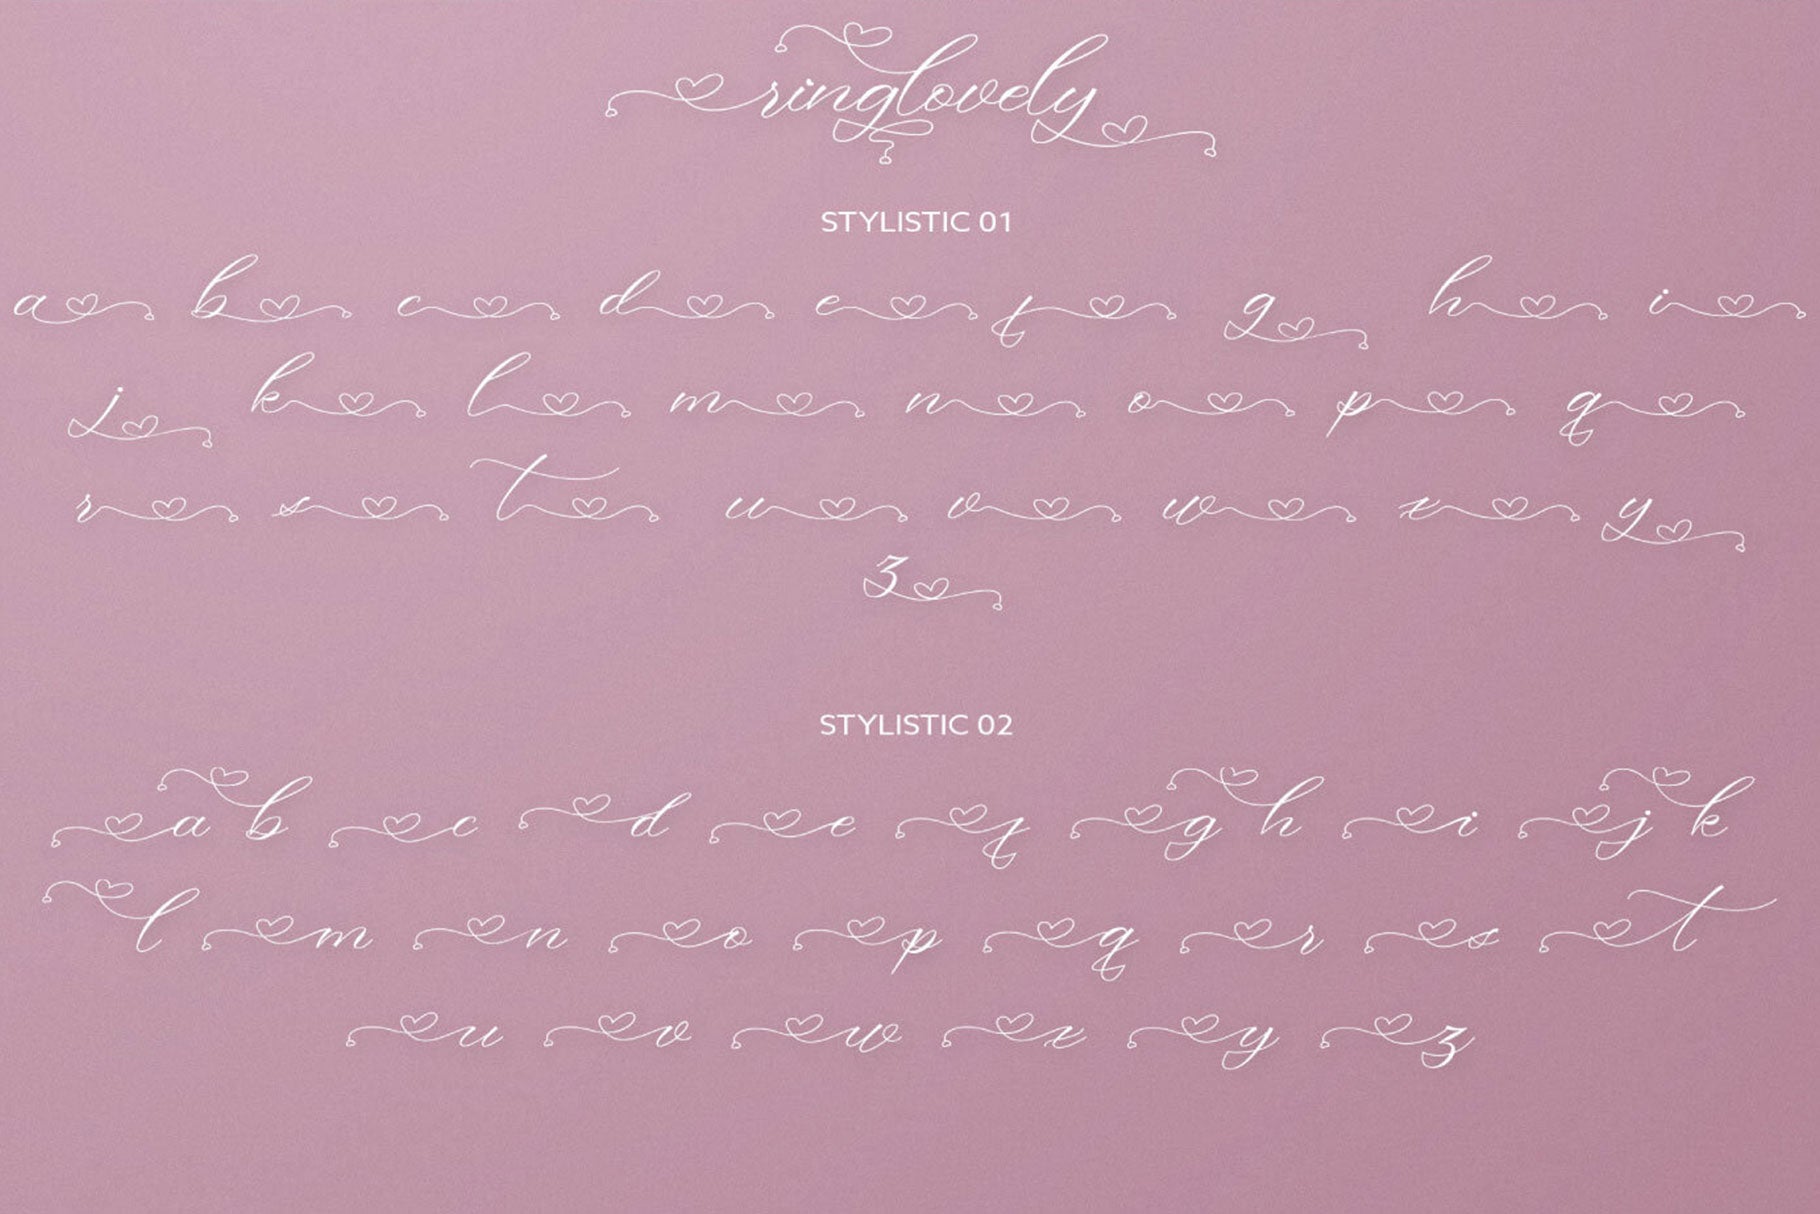 ringlovely
STYLISTIC 01
a b c d e f g h i
j k l m n o p q
r s t u v w x y
z
STYLISTIC 02
a b c d e f g h i j k
l m n o p q r s t
u v w x y z